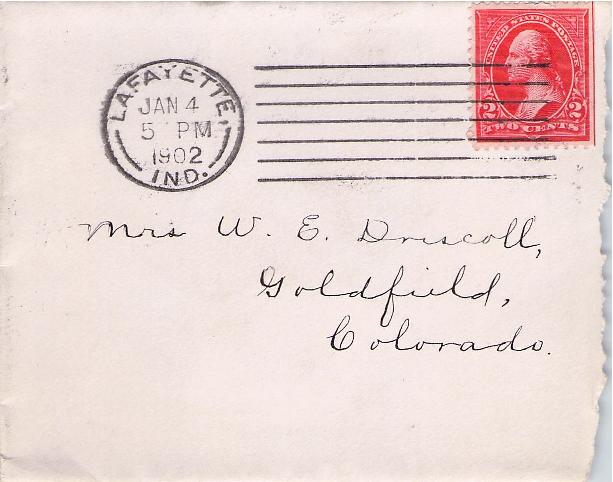 UNITED STATES POSTAGE
2 2
TWO CENTS
LAFAYETTE,
JAN 4
5 PM
1902
IND.
Mrs W. E. Driscoll,
Goldfield,
Colorado.